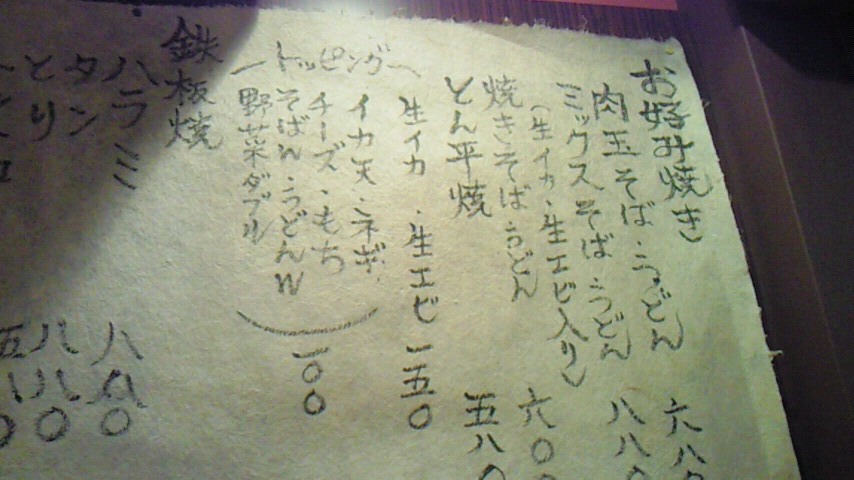 お好み焼き
肉玉そば・うどん 六八〇
ミックスそば・うどん 八八〇
(生イカ・生エビ入り)
焼きそば・うどん 六〇〇
とん平焼 五八〇
ートッピングー
生イカ・生エビ 一五〇
イカ天・ネギ
チーズ・もち
そば・うどんW
野菜ダブル
一〇〇
鉄板焼
ハラミ 八八〇
タン 八八〇